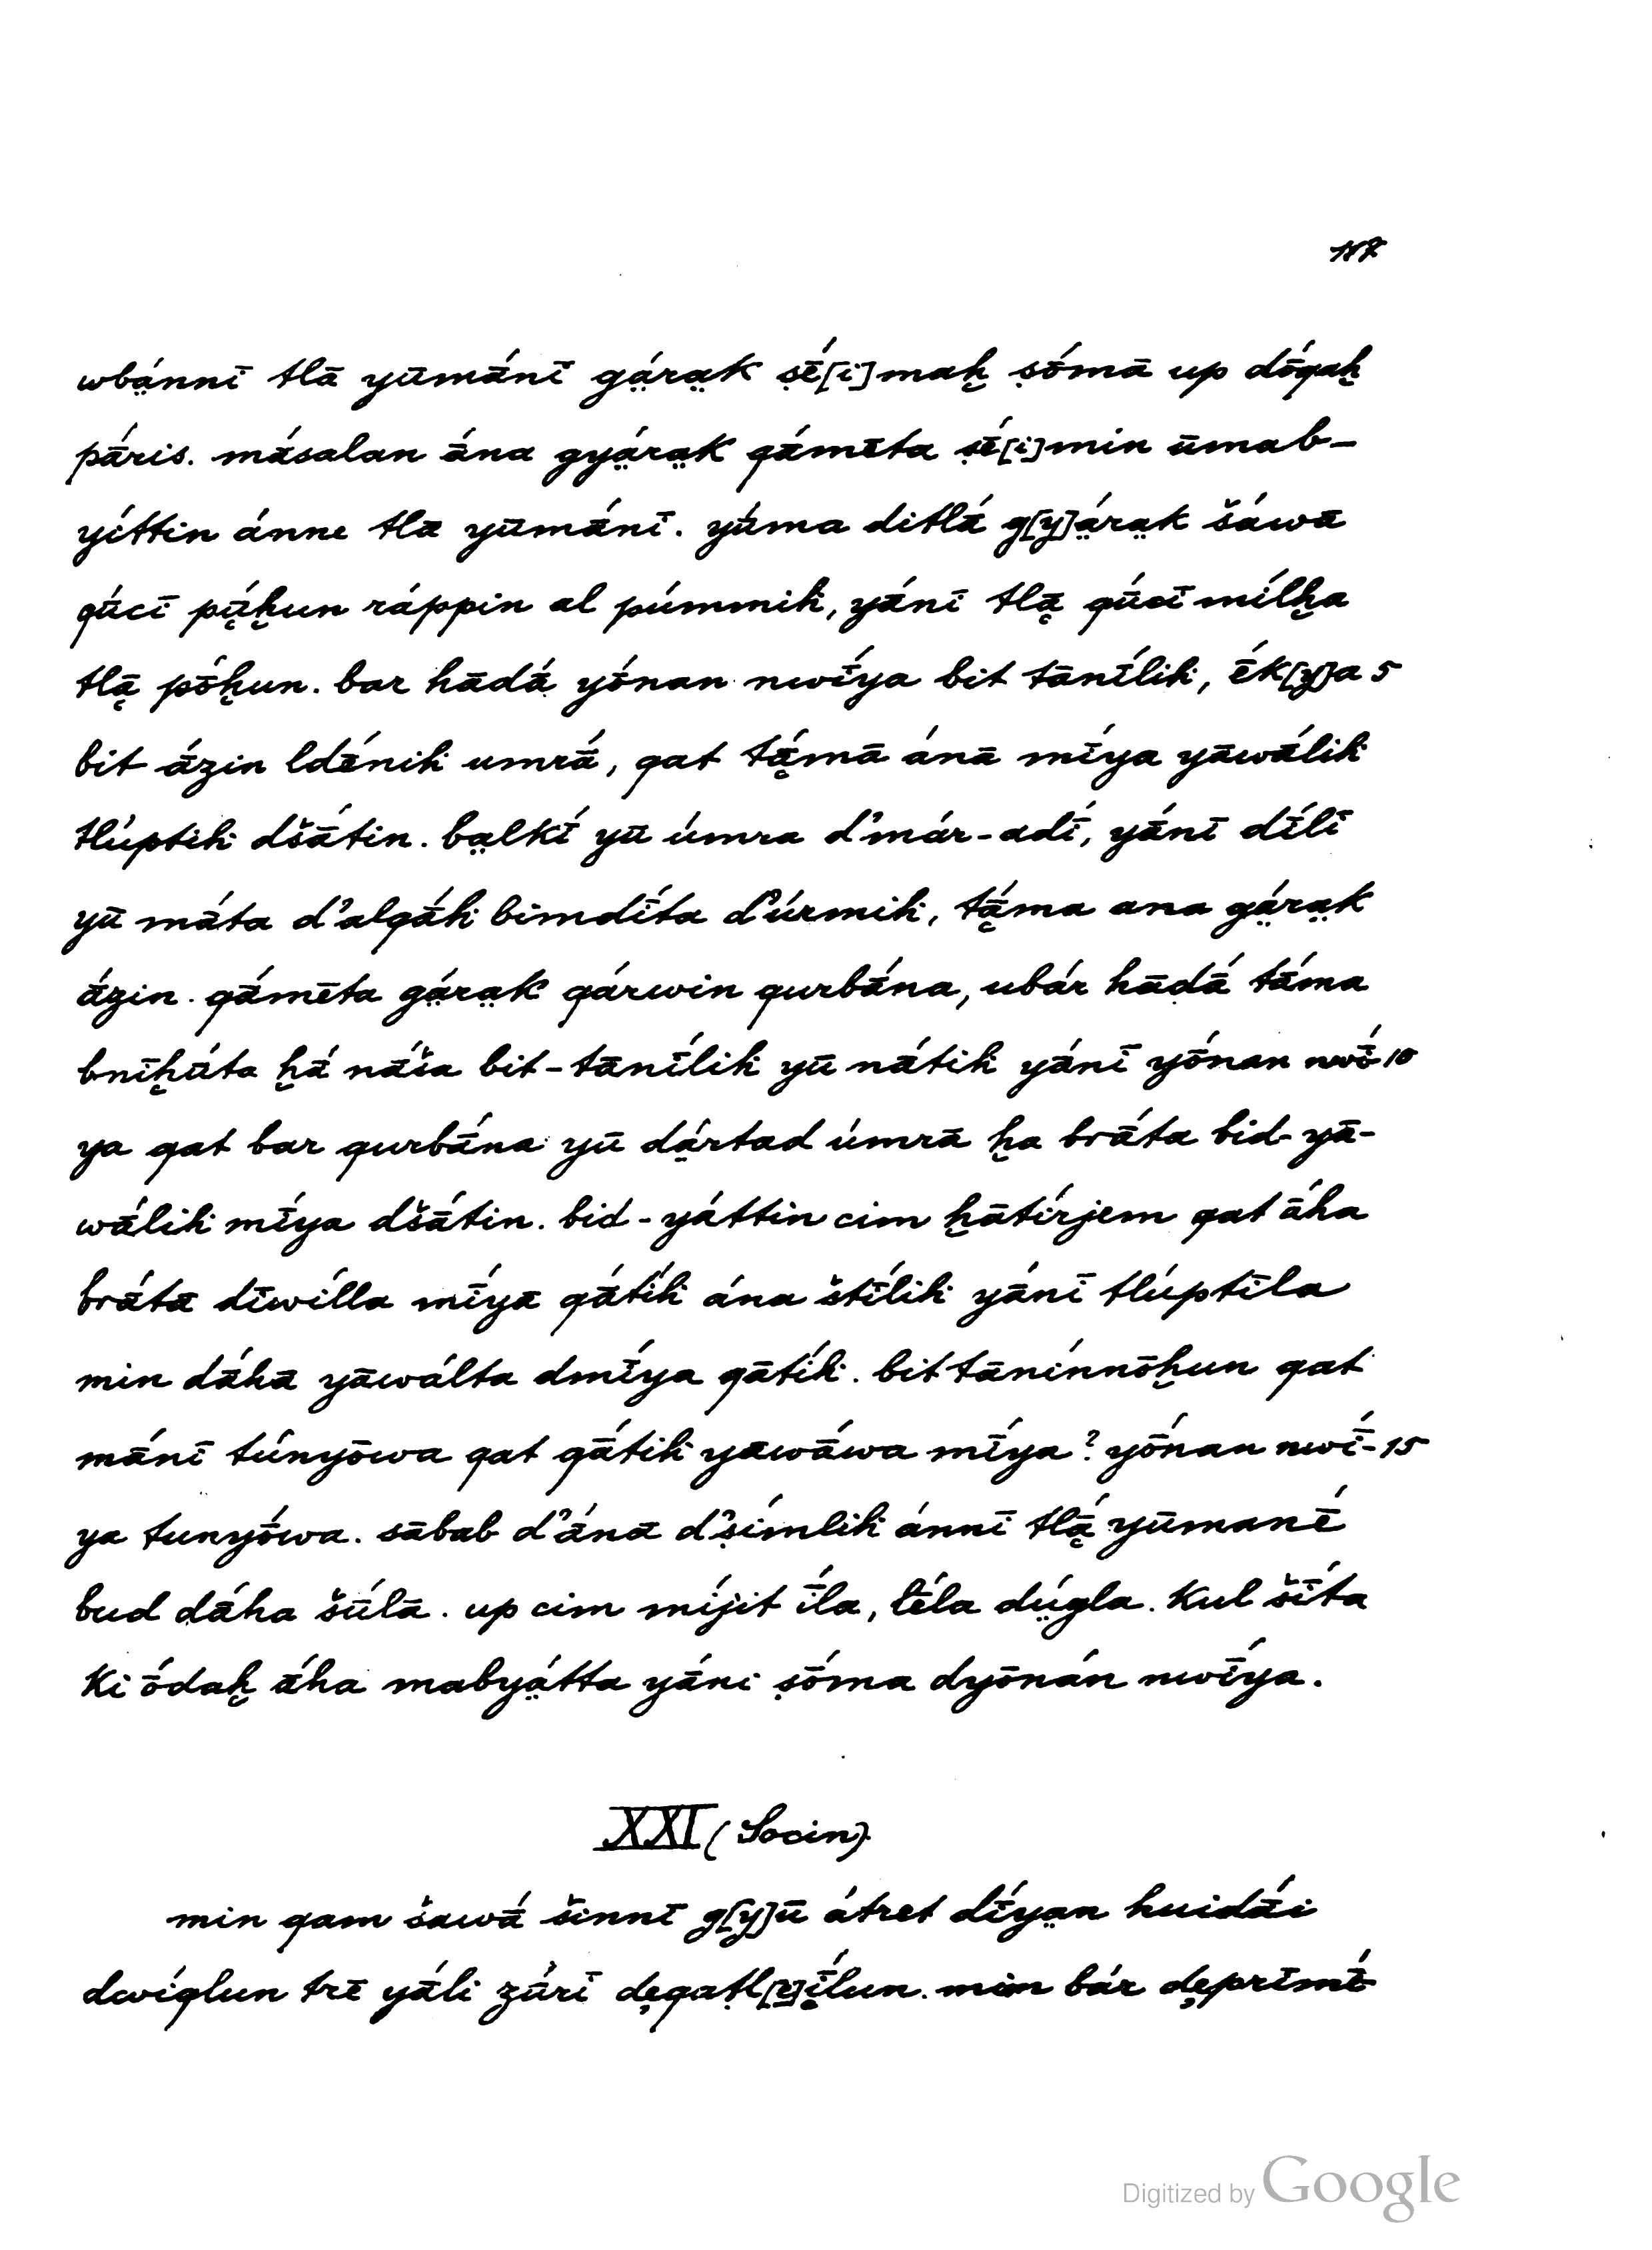 117
wbä́nnī tlā yūmā́nī gä́rä̤k ṣḗ[ī]maḫ ṣṓmā up dṓqaḫ
pā́ris. másalan ā́na gyä́rä̤k qā́mēta ṣḗ[i]min ūmab-
yíttin ánne tlā yūmā́nī. yū́ma ditlā́ g[y]ä́rä̤k šáwā
qū́cī pū̯́ḫun ráppin al púmmih, yā́nī tlā̯ qū́cī mílḫa
tlā̯ pṓḫun. bar hādā́ yṓnan nwī́ya bit tānī́lih, ḗk[y]a 5
bit ā́zin ldḗnih umrā́, qat tā̯́mā ánā mī́ya yāwálih
tlúptih dšā́tin. ba̤lkī́ yū úmra d'már-adī́, yā́nī dī́lī
yū mā́ta d'alqā́h bimdī́ta d'úrmih, tā̯́ma ana gä́rä̤k
ā́zin. qā́mēta gä́rä̤k qárwin qurbā́na, ubár hādā́ tā́ma
bnīḫū́ta ḫā́ nā́ša bit-tānī́lih yū nátih yā́nī yṓnan nwī́- 10
ya qat bar qurbā́na yū dä́rtad úmrā ḫa brā́ta bid-yā-
wálih mī́ya dšā́tin. bid-yáttin cim ḫātírjem qat ā́ha
brā́tā dīwílla mī́yā qā́tih ána štī́lih yā́nī tlúptīla
min dā́hā yāwálta dmī́ya qātíh. bit tānínnōḫun qat
mā́nī túnyōwa qat qā́tih yāwā́wa mī́ya? yṓnan nwī́- 15
ya tunyṓwa. sābab d'ā́nā d'ṣímlih ánnī tlā̯́ yūmanḗ
bud dā́ha šū́lā. up cim míjit ī́la, lḗla dúgla. kul šī́ta
ki ṓdaḫ ā́ha mabyä́tta yā́ni ṣṓma dyōnán nwī́ya.
XXI (Socin).
min qam šawā́ šínnī g[y]ū átret dī́yan huidā́i
dwíqlun trē yā́li zū́rī dẹqaṭl[ī]ī́lun. min bár dẹprīmī́-
Digitized by Google